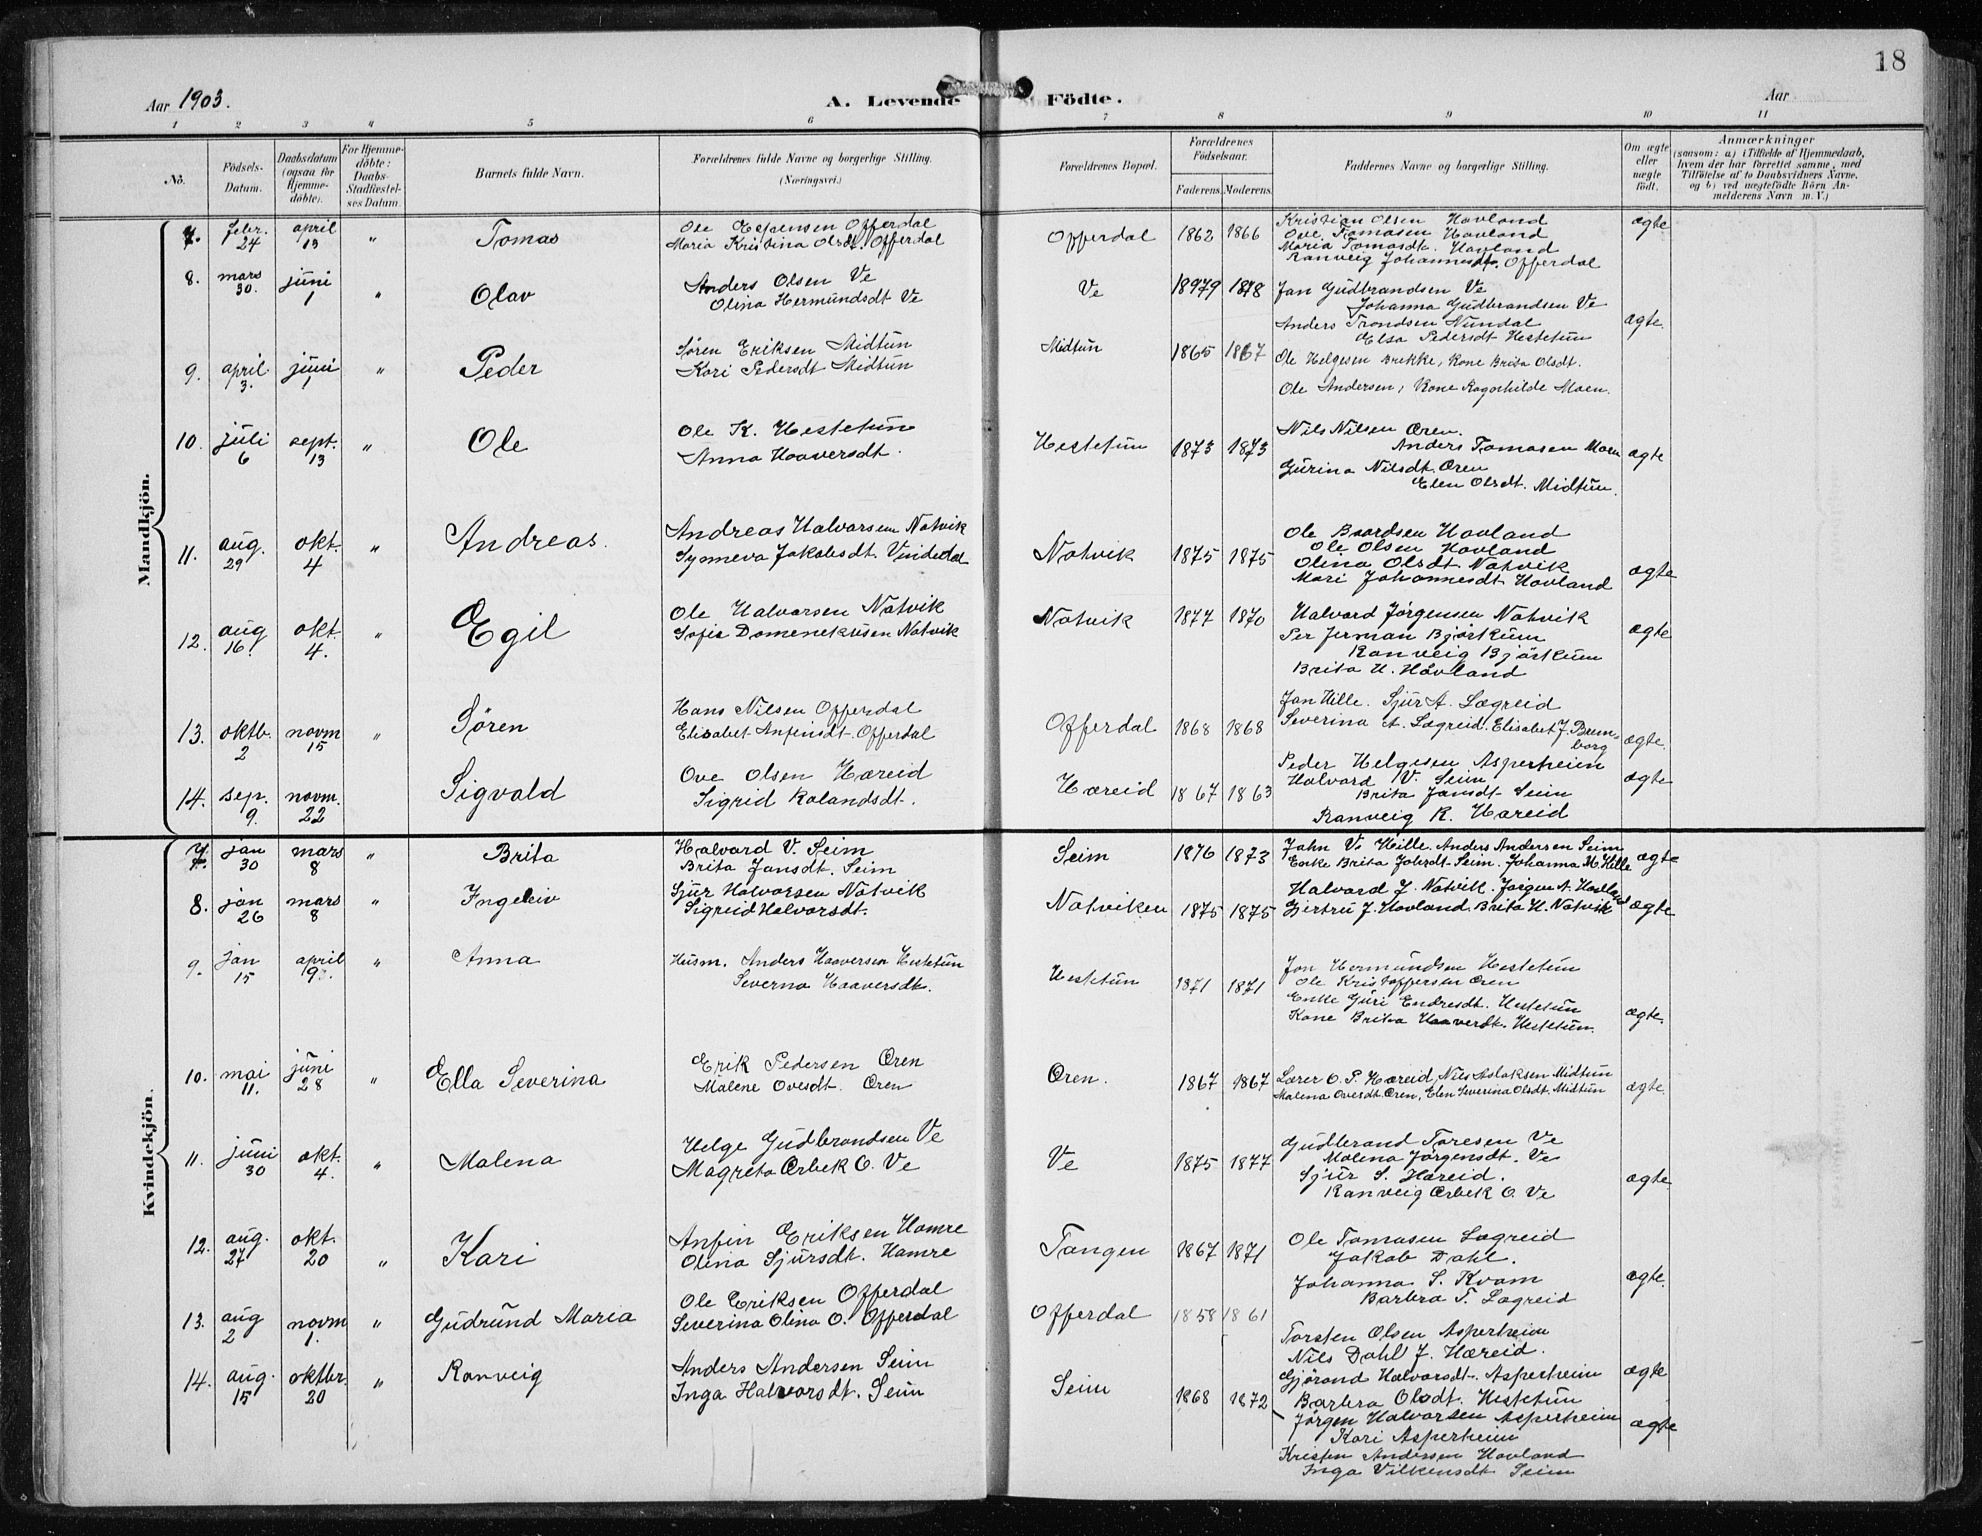 18
Aar 1903. A. Levende Födte. Aar
1 2 3 4 5 6 7 8 9 10 11
No. Födsels-Datum. Daabsdatum (ogsaa for Hjemmedöbte). For Hjemmedöbte: Daabs-Stadfæstelses Datum. Barnets fulde Navn. Forældrenes fulde Navne og borgerlige Stilling. (Næringsvei.) Forældrenes Bopæl. Forældrenes Födselsaar. Faderens. Moderens. Faddernes Navne og borgerlige Stilling. Om ægte eller uægte födt. Anmærkninger (saasom: a) i Tilfælde af Hjemmedaab, hvem der har forrettet samme, med Tilföielse af to Daabsvidners Navne, og b) ved uægtefödte Börn Anmelderens Navn m. V.)
Mandkjön.
7. febr. 24 april 13 " Tomas Ole Espensen Offerdal
Maria Kristina Olsdt. Offerdal Offerdal 1862 1866 Kristian Olsen Hovland
Ove Tomasen Hovland
Maria Tomasdt. Hovland
Ranveig Johannesdt. Offerdal ægte
8. mars 30. juni 1 " Olav Anders Olsen Ve
Olina Hermundsdt Ve Ve 18979 1878 Jan Gudbrandsen Ve
Johanna Gudbrandsen Ve
Anders Trondsen Nundal
Elsa Pedersdt Hestetun ægte.
9. april 3. juni 1 " Peder Søren Eriksen Midtun
Kari Pedersdt Midtun Midtun 1865 1867 Ole Helgesen Brekke, Kone Brita Olsdt.
Ole Andersen, Kone Ragnhilde Moen.
10. juli 6 sept. 13 " Ole Ole K. Hestetun
Anna Haaversdt. Hestetun 1873 1873 Nils Nilsen Øren.
Anders Tomasen Moen
Gurina Nilsdt. Øren
Elen Olsdt. Midtun. ægte
11. aug. 29 okt. 4 " Andreas. Andreas Halvorsen Natvik
Synneva Jakobsdt. Vindedal Natvik 1875 1875 Ole Baardsen Hovland
Ole Olsen Hovland
Olina Olsdt Natvik
Mari Johannesdt Hovland ægte
12. aug 16. okt. 4. " Egil Ole Halvorsen Natvik
Sofie Domenekusen Natvik Natvik 1877 1870 Halvard Jørgensen Natvik
Per Jerman Bjørkum
Ranveig Bjørkum
Brita H. Hovland ægte
13. oktb. 2 novm 15 " Søren Hans Nilsen Offerdal
Elisabet Anfinsdt. Offerdal Offerdal 1868 1868 Jan Hille. Sjur A. Lægreid
Severina A. Lægreid. Elisabet J. Bumborg ægte.
14. sep. 9. novm. 22 Sigvald Ove Olsen Hæreid
Sigrid Rolandsdt. Hæreid 1867 1863 Peder Helgesen Asperheim
Halvard V. Seim
Brita Jansdt. Seim
Ranveig R. Hæreid ægte
Kvindekjön.
7. jan 30 mars 8 " Brita Halvard V. Seim
Brita Jansdt. Seim Seim 1876 1873 John V. Hille. Anders Andersen Seim
Enke Brita Johsdt. Seim. Johanna M. Hille ægte
8. jan 26 mars 8 " Ingeleiv Sjur Halvorsen Natvik
Sigreid Halvorsdt. Natviken 1875 1875 Halvard J. Natvik. Jørgen N. Hovland
Gjertru J. Hovland. Brita H. Natvik ægte
9. jan 15 april 9. " Anna Husm. Anders Haaversen Hestetun
Severna Haaversdt. Hestetun 1871 1871 Jon Hermundsen Hestetun
Ole Kristoffersen Øren
Enke Guri Endresdt. Hestetun
Kone Brita Haaverdt. Hestetun. ægte.
10. mai 11. juni 28 " Ella Severina Erik Pedersen Øren
Malene Ovesdt. Øren Øren. 1867 1867 Lærer O. P. Hæreid, Nils Aslaksen Midtun
Malena Ovesdt. Øren, Elen Severina Olsdt. Midtun ægte.
11. juni 30 okt. 4. " Malena Helge Gudbrandsen Ve
Magreta Ørbek O. Ve Ve 1875 1877 Gudbrand Toresen Ve
Malena Jørgensdt. Ve
Sjur S. Hæreid.
Ranveig Ørbek O. Ve ægte.
12. aug. 27 okt. 20 " Kari Anfin Eriksen Hamre
Olina Sjursdt. Hamre Tangen 1867 1871 Ole Tomasen Lægreid
Jakob Dahl.
Johanna S. Kvam
Barbra T. Lægreid ægte.
13. aug 2 novm 1. " Gudrund Maria Ole Eriksen Offerdal
Severina Olina O. Offerdal Offerdal 1858 1861 Torsten Olsen Asperheim
Nils Dahl J. Hæreid.
Gjørond Halvorsdt. Asperheim
Barbra Olsdt. Hestetun ægte
14. aug. 15 oktbr. 20 " Ranveig Anders Andersen Seim
Inga Halvorsdt. Seim Seim 1868 1872 Jørgen Halvorsen Asperheim
Kari Asperheim
Kristen Andersen Hovland
Inga Vilkensdt Seim ægte